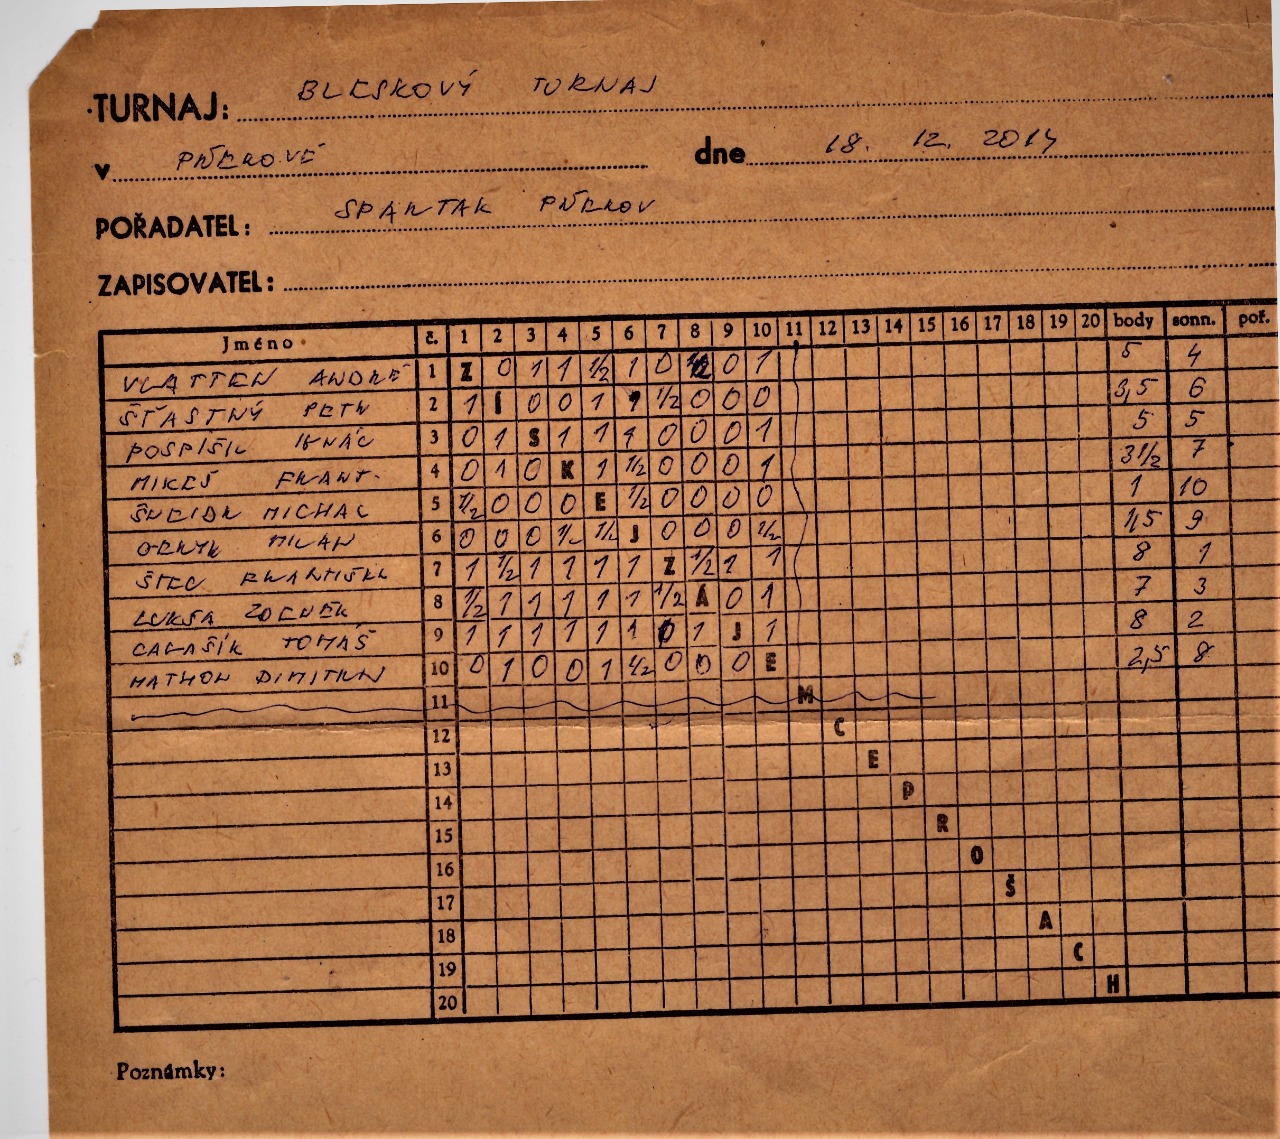 TURNAJ: BLESKOVÝ TURNAJ
v PŘEROVĚ dne 18. 12. 2014
POŘADATEL: SPARTAK PŘEROV
ZAPISOVATEL:
Jméno č. 1 2 3 4 5 6 7 8 9 10 11 12 13 14 15 16 17 18 19 20 body sonn. poř.
VLATTEN ANDRÉ 1 Z 0 1 1 1/2 1 0 1/2 0 1 5 4
ŠŤASTNÝ PETR 2 1 Í 0 0 1 1 1/2 0 0 0 3,5 6
POSPÍŠIL IGNÁC 3 0 1 S 1 1 1 0 0 0 1 5 5
MIKEŠ FRANT. 4 0 1 0 K 1 1/2 0 0 0 1 3 1/2 7
ŠNEIDR MICHAL 5 1/2 0 0 0 E 1/2 0 0 0 0 1 10
MILAN 6 0 0 0 1/2 1/2 J 0 0 0 1/2 1,5 9
ŠTEC FRANTIŠEK 7 1 1/2 1 1 1 1 Z 1/2 1 1 8 1
LUKŠA ZDENĚK 8 1/2 1 1 1 1 1 1/2 A 0 1 7 3
CAGAŠÍK TOMÁŠ 9 1 1 1 1 1 1 0 1 J 1 8 2
MATHON DIMITRIJ 10 0 1 0 0 1 1/2 0 0 0 E 2,5 8
11 M
12 C
13 E
14 P
15 R
16 O
17 Š
18 A
19 C
20 H
Poznámky: